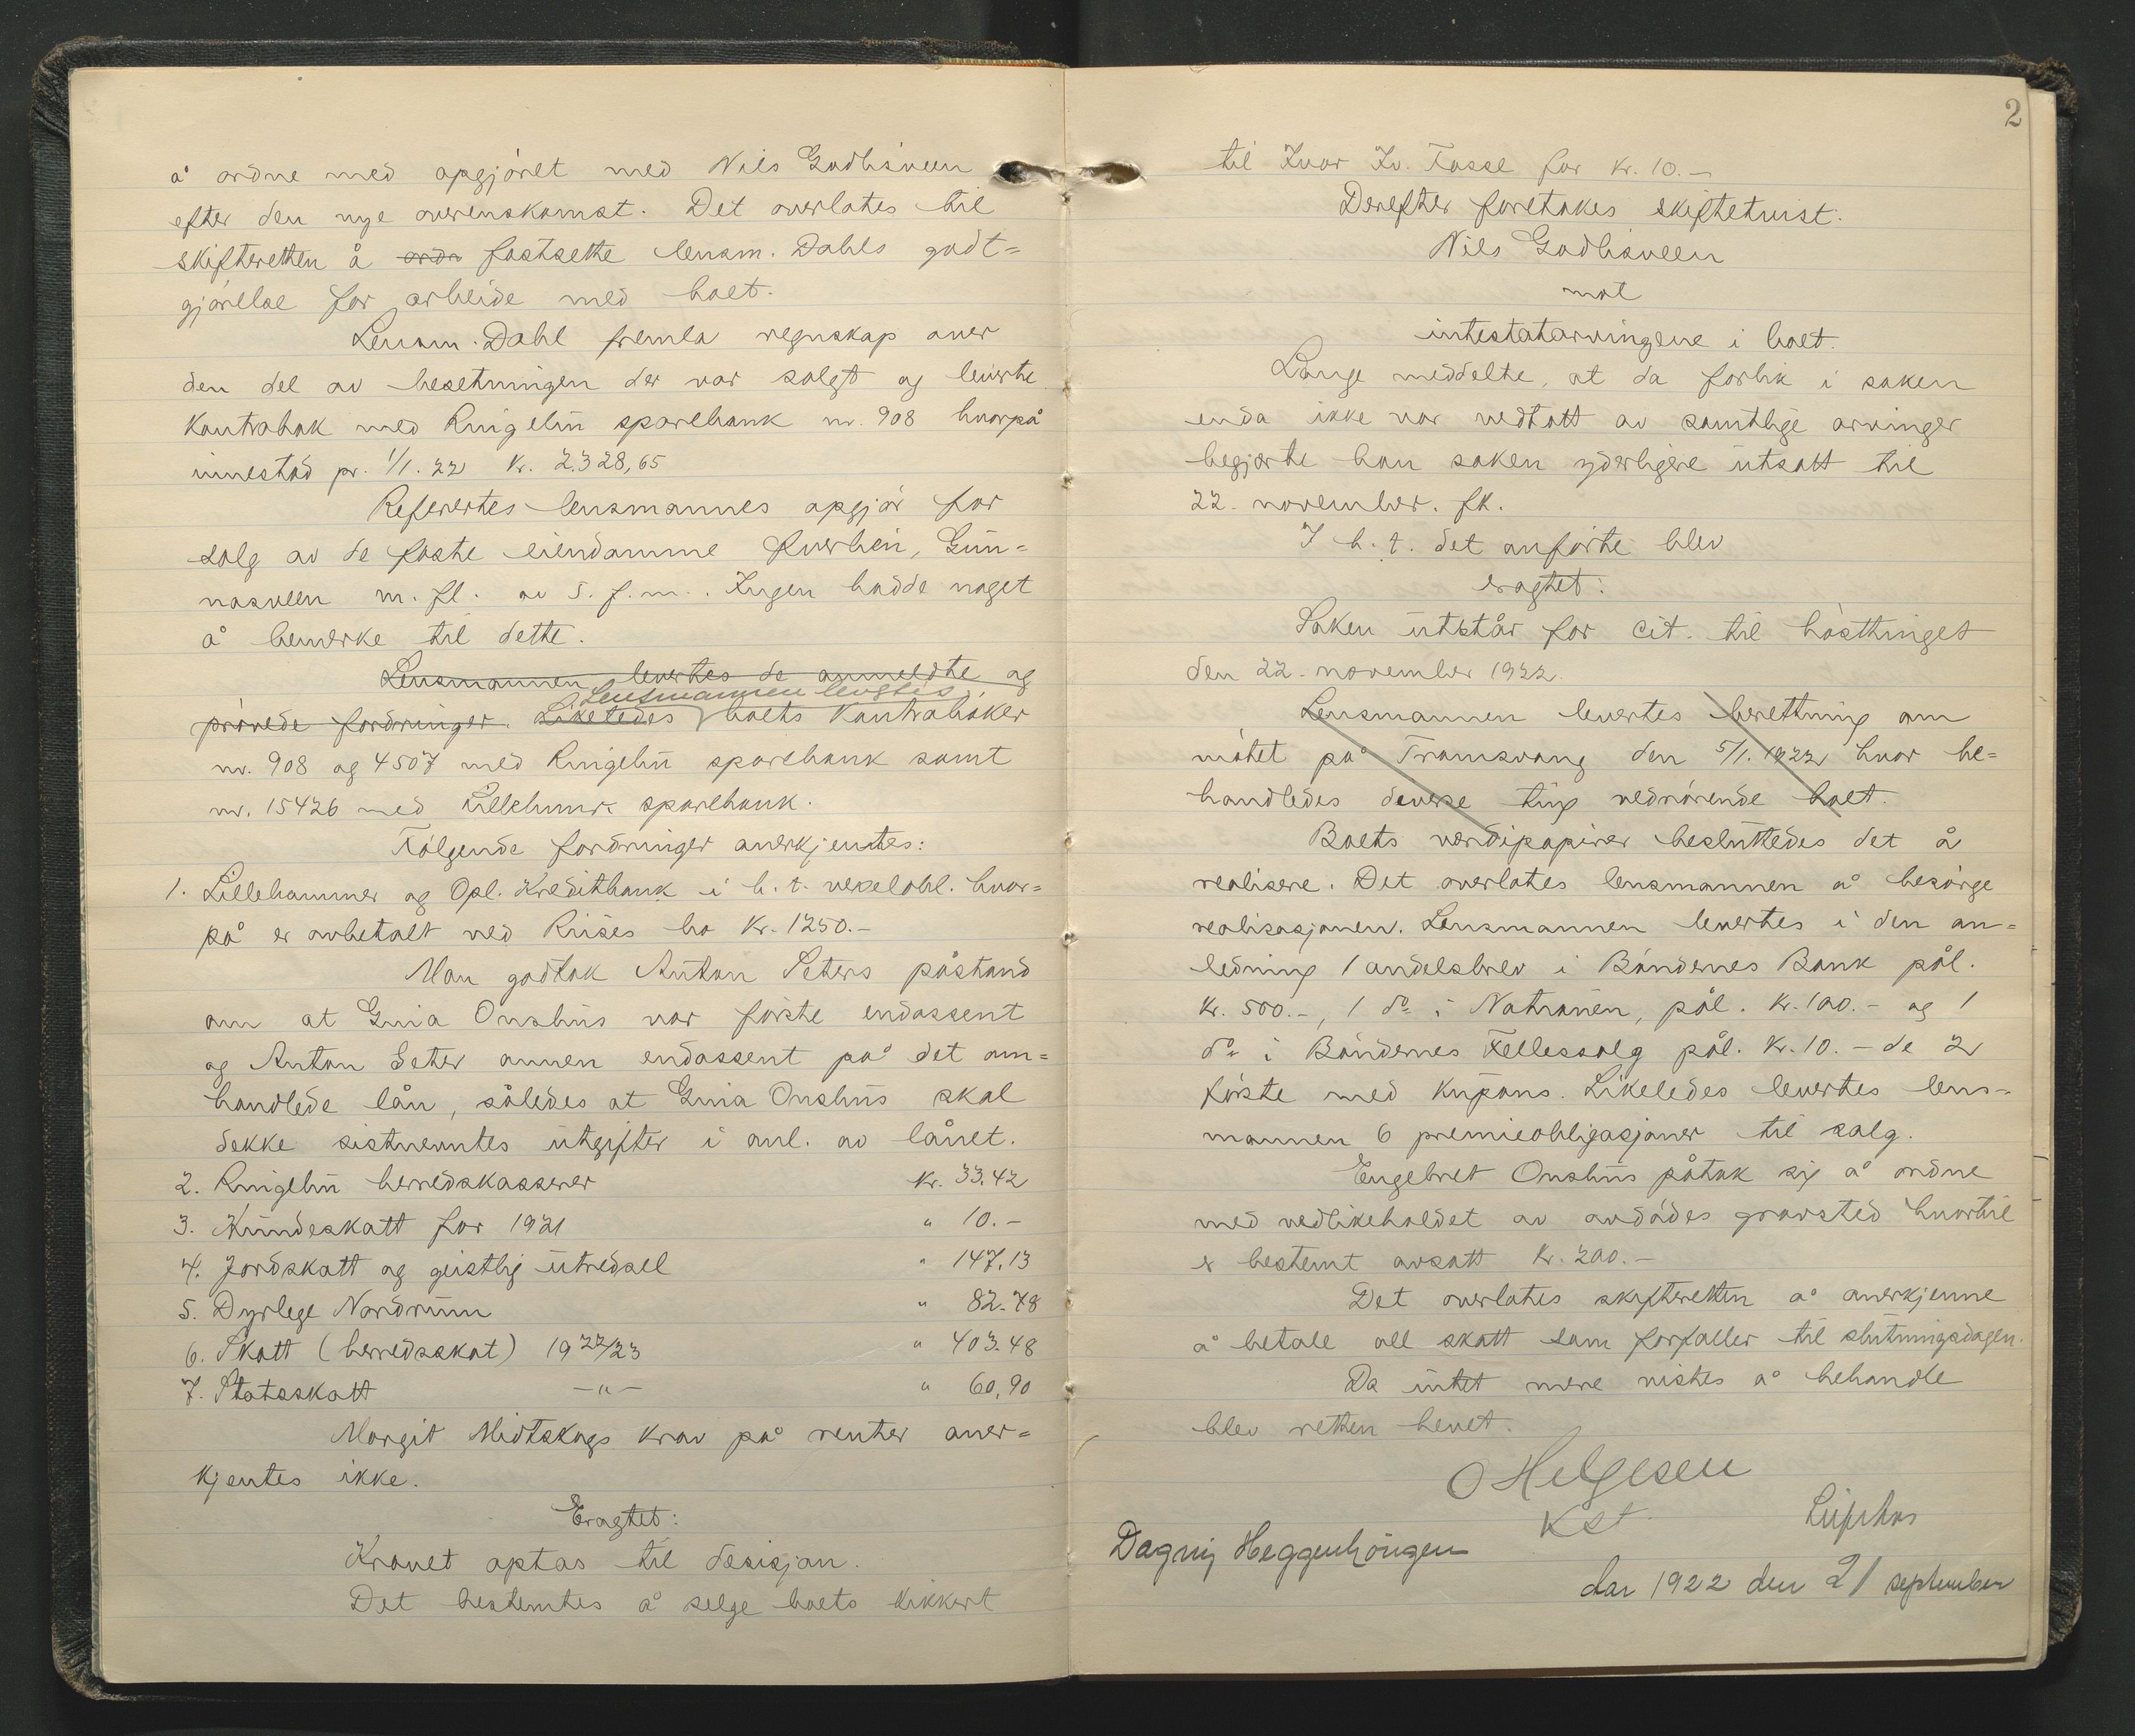 å ordne med opgjöret med Nils Godlisveen
efter den nye overenskomst. Det overlates til
skifteretten å ordn fastsette lensm. Dahls godt=
gjörelse for arbeide med boet.
Lensm. Dahl fremla regnskap over
den del av besetningen der var solgt og leverte
kontrabok med Ringebu sparebank nr. 908 hvorpå
innestod pr. 1/1. 22 kr. 2.328,65
Referertes lensmannes opgjör for
salg av de faste eiendomme Furberi, Gun=
nasveen m. fl. av s. f. m. . Ingen hadde noget
å bemerke til dette.
Lensmannen levertes de anmeldte og
Lensmannen levertes
prövede fordringer. Likeledes boets kontraböker
nr. 908 og 4507 med Ringebu sparebank samt
nr. 15426 med Lillehmr. sparebank.
Fölgende fordringer anerkjentes:
1. Lillehammer og Opl. Kreditbank i h. t. vekselobl. hvor=
på er avbetalt ved Riises bo kr. 1250.-
Man godtok Anton Seters påstand
om at Guia Onshus var förste endossent
og Anton Seter annen endossent på det om=
handlede lån, således at Guia Onshus skal
dekke sistnevntes utgifter i anl. av lånet.
2. Ringebu herredskasserer kr. 33.42
3. Hundeskatt for 1921 " 10.-
4. Jordskatt og geistlig utredsel " 147.13
5. Dyrlege Nordrum " 82.78
6. Skatt (herredsskat) 1922/23 " 403.48
7. Statsskatt -"- " 60,90
Margit Midtskogs krav på renter aner=
kjentes ikke.
Eragtet:
Kravet optas til desisjon.
Det bestemtes å selge boets kikkert
2
til Ivar Iv. Fosse for kr. 10.-
Derefter foretokes skiftetvist:
Nils Godlisveen
mot
intestatarvingene i boet.
Lange meddelte, at da forlik i saken
enda ikke var vedtatt av samtlige arvinger
begjærte han saken yderligere utsatt til
22. november. fk.
I h. t. det anförte blev
eragtet:
Saken utstår for cit. til hösttinget
den 22. november 1922.
Lensmannen levertes berettning om
mötet på Tromsvang den 5/1. 1922 hvor be=
handledes diverse ting vedrörende boet.
Boets verdipapirer besluttedes det å
realisere. Det overlates lensmannen å besörge
realisasjonen. Lensmannen levertes i den an=
ledning 1 andelsbrev i Böndernes Bank pål.
kr. 500.-, 1 do i Natronen, pål. kr. 100.- og 1
do i Böndernes Fellessalg pål. kr. 10.- de 2
förste med kupons. Likeledes levertes lens=
mannen 6 premieobligasjoner til salg.
Engebret Onshus påtok sig å ordne
med vedlikeholdet av avdödes gravsted hvortil
er bestemt avsatt kr. 200.-
Det overlates skifteretten å anerkjenne
å betale all skatt som forfaller til slutningsdagen.
Da intet mere vistes å behandle
blev retten hevet.
O Helgesen
Kst.
Dagny Heggenhougen
dar 1922 den 21 september